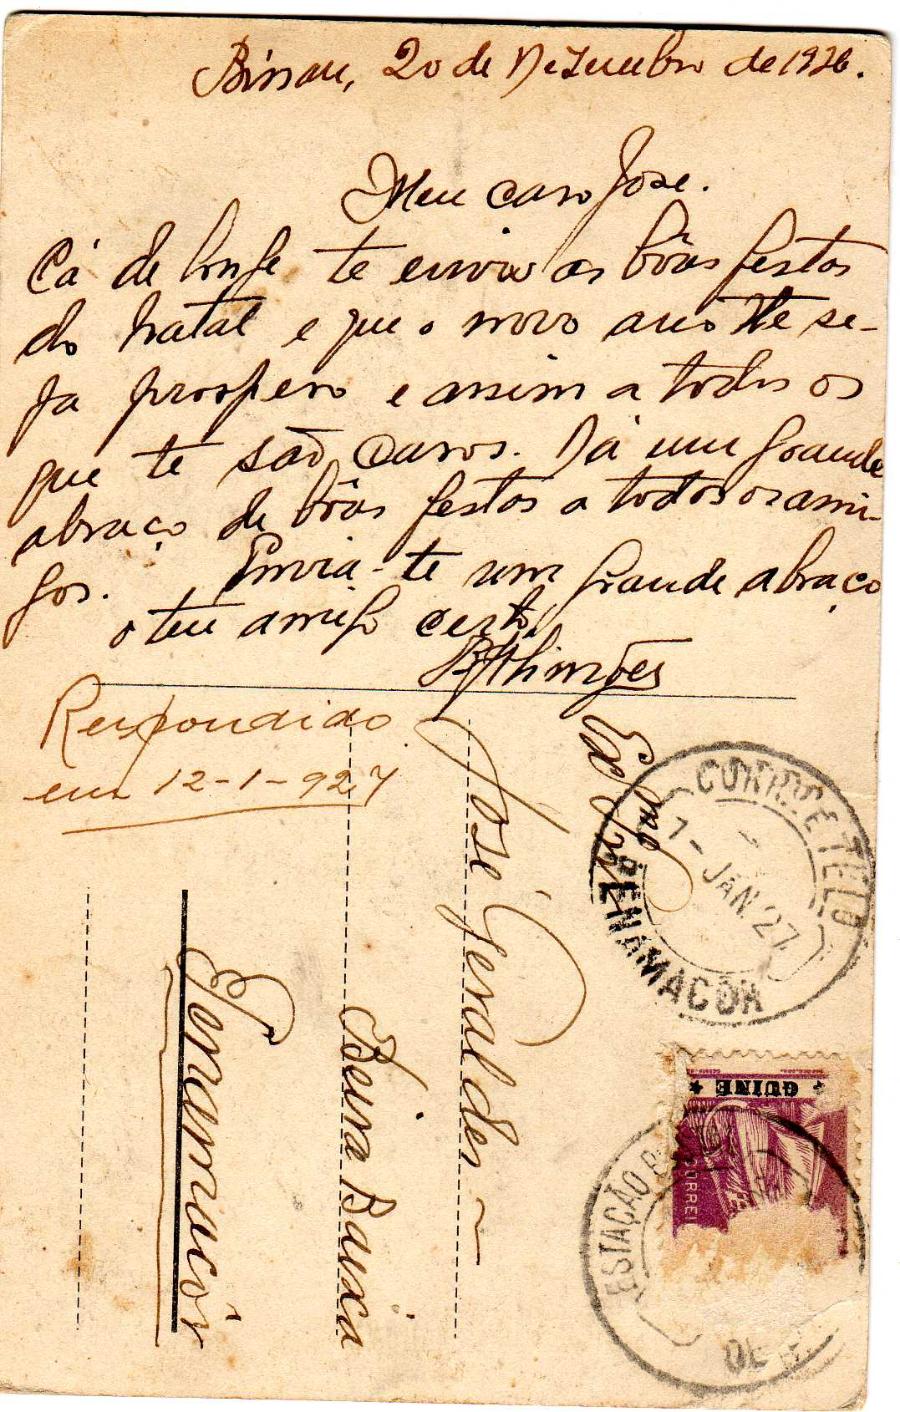 Bissau, 20 de Dezembro de 1926.
Meu caro José.
Cá de longe te envio as bôas festas
do natal e que o novo ano te se-
ja prospero e assim a todos os
que te são caros. Dá um grande
abraço de bôas festas a todos os ami-
gos. Envia-te um grande abraço
o teu amigo certo,
Respondido
em 12-1-927
José Geraldes
Beira Baixa
Penamacôr
CORR. E TELO
7-JAN.27
PENAMACOR
GUINÉ
CORREIO
ESTAÇÃO
DE